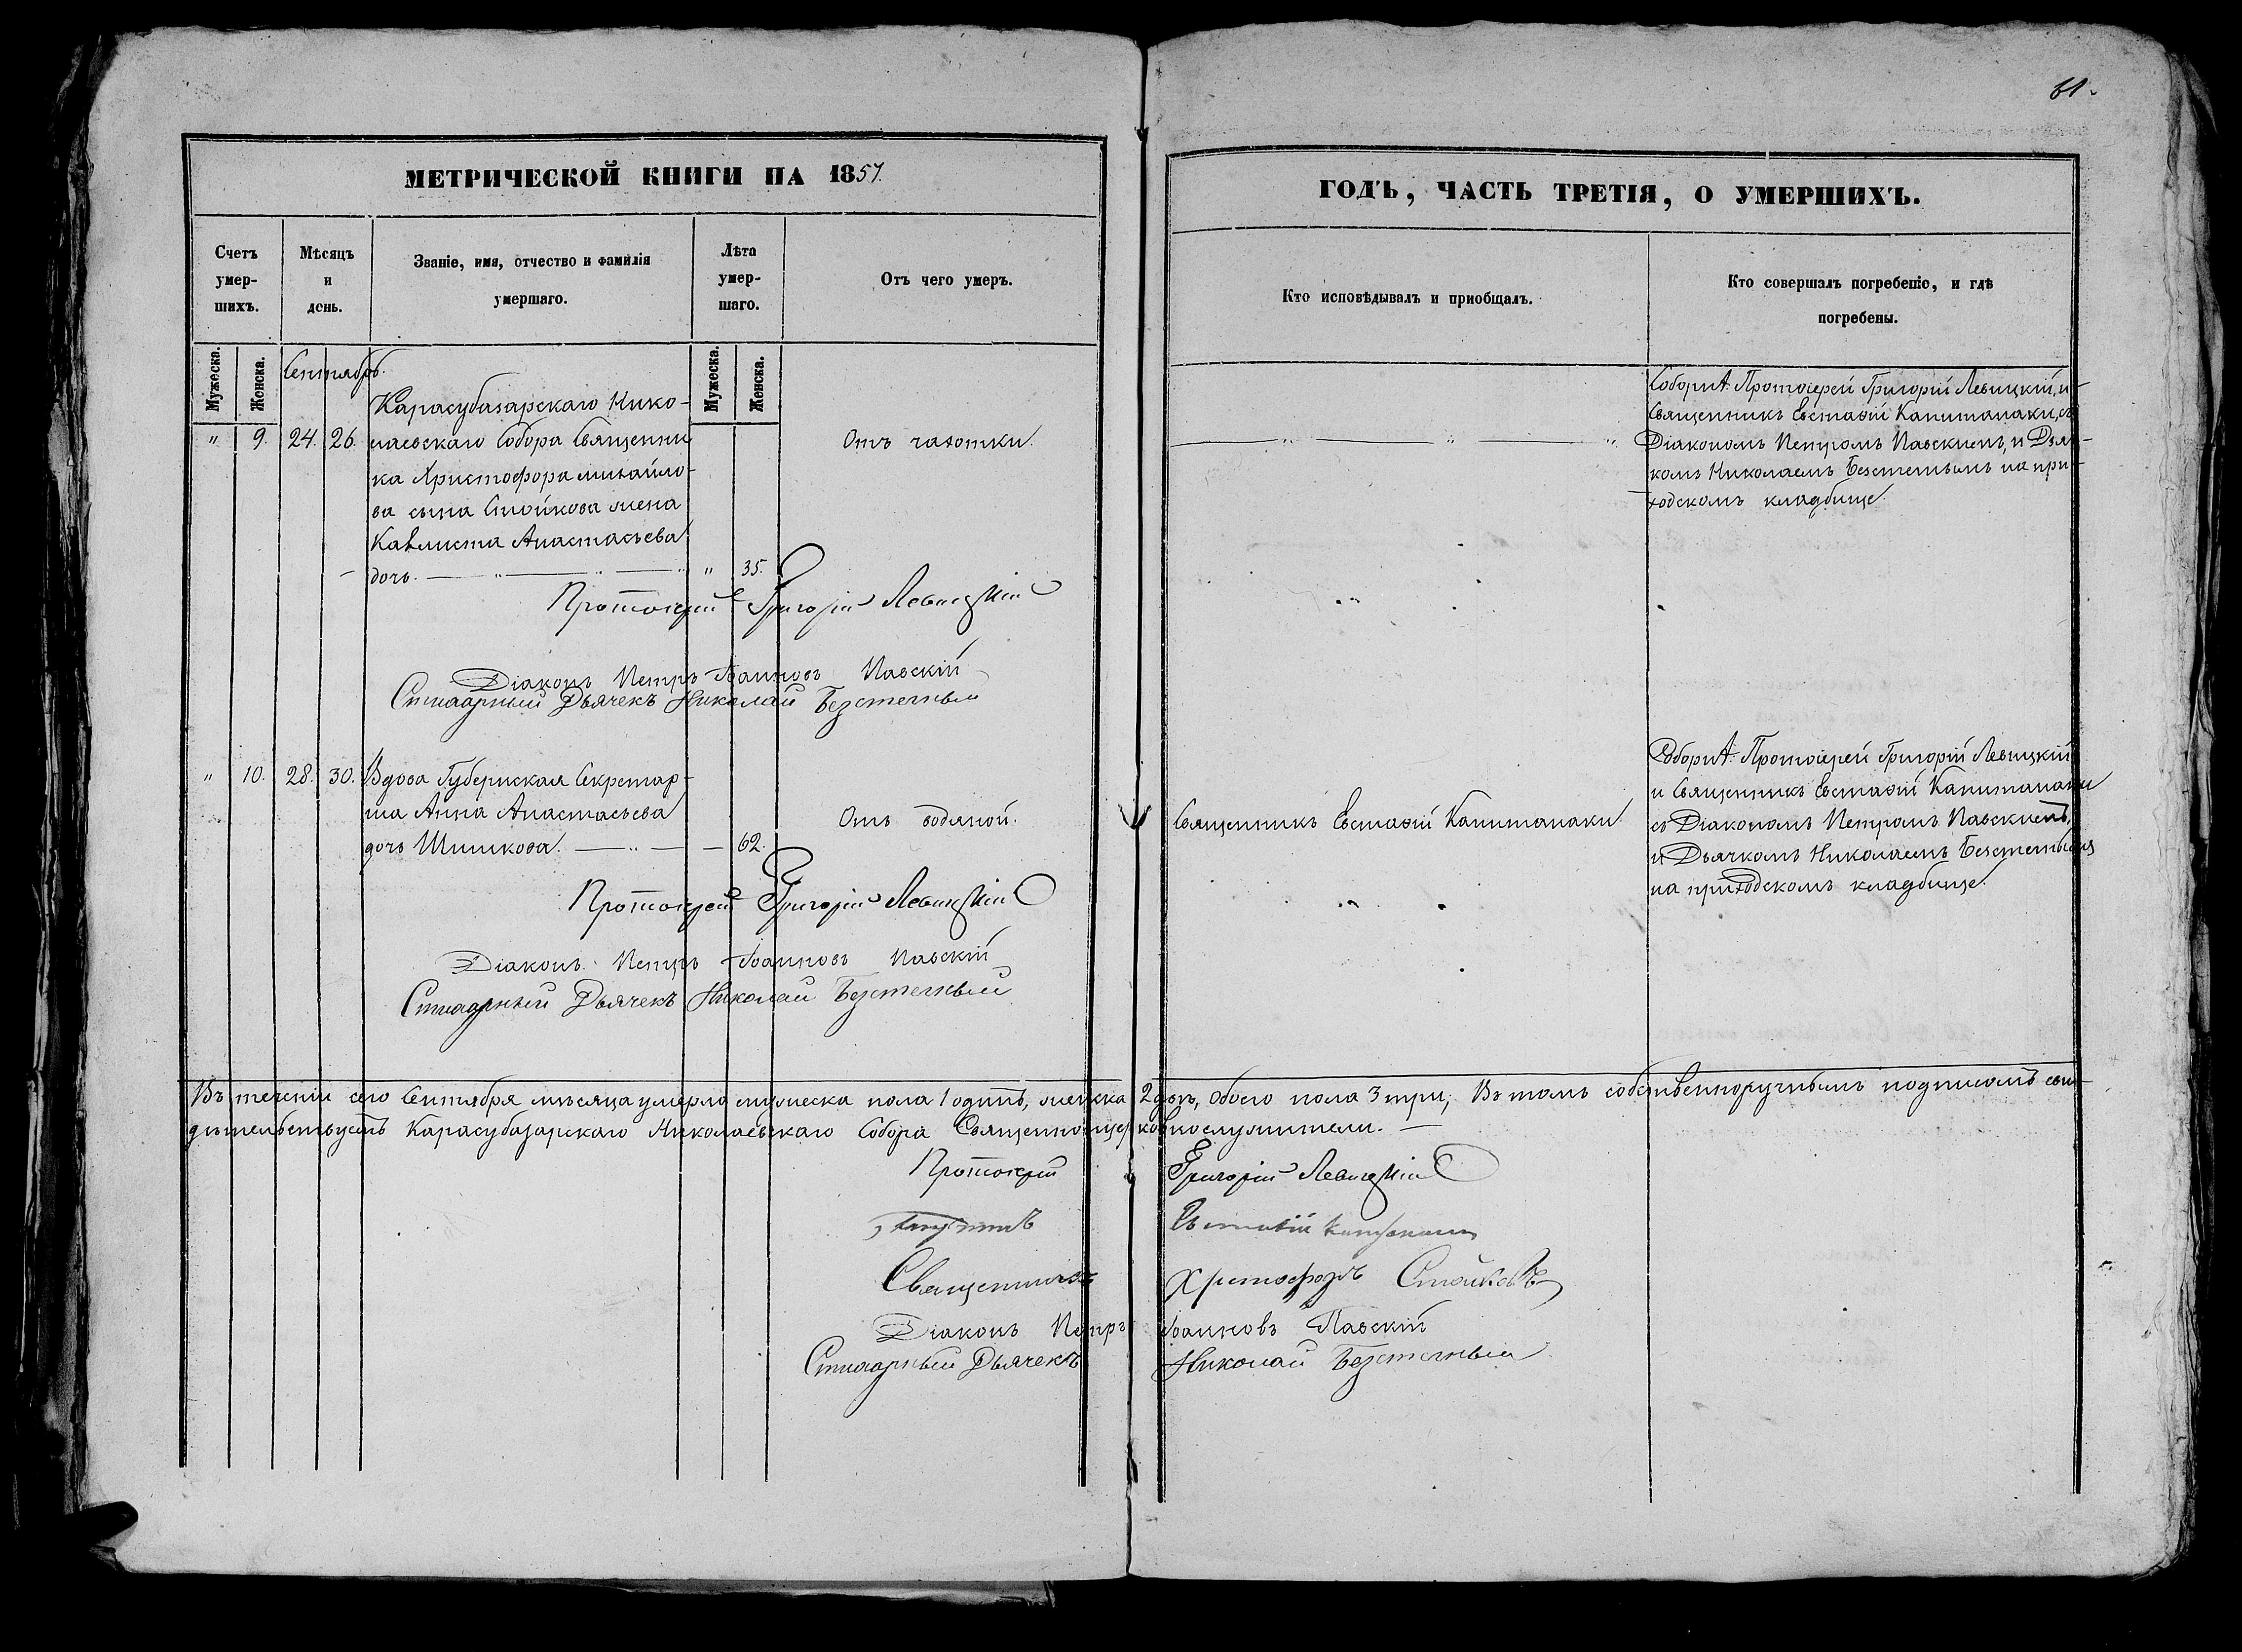 61.
МЕТРИЧЕСКОЙ КНИГИ НА 1857.
ГОДЪ, ЧАСТЬ ТРЕТІЯ, О УМЕРШИХЪ.
Счетъ умер-шихъ.
Мѣсяцъ и день.
Званіе, имя, отчество и фамилія умершаго.
Лѣта умер-шаго.
Отъ чего умеръ.
Кто исповѣдывалъ и пріобщалъ.
Кто совершалъ погребеніе, и гдѣ погребены.
Мужеска.
Женска.
Сентябрь.
Мужеска.
Женска.
" 9. 24. 26.
Карасубазарскаго Нико-
лаевскаго Собора Священни
ка Христофора михайло-
ва сына Стойкова жена
Каллиста Анастасьева
дочь. " 35.
Отъ чахотки.
Протоіерей Григорій Левицкій, и
Священникъ Евстафій Капитанаки, съ
Діакономъ Петромъ Павскимъ, и Дьяч-
комъ Николаемъ Безстетнымъ на при-
ходскомъ кладбище.
Протоіерей Григорій Левицкій
Діаконъ Петръ Іоанновъ Павскій
Стихарный Дьячекъ Николай
" 10. 28. 30.
Вдова Губернская Секретар-
ша Анна Анастасьева
дочь Шишкова. 62.
Отъ водяной.
Священникъ Евстафій Капитанаки
Протоіерей Григорій Левицкій
и Священникъ Евстафій Капитанаки
съ Діакономъ Петромъ Павскимъ,
и Дьячкомъ Николаемъ
на приходскомъ кладбище.
Протоіерей Григорій Левицкій
Діаконъ Петръ Іоанновъ Павскій
Стихарный Дьячекъ Николай
Въ теченіи сего Сентября мѣсяца умерло мужеска пола 1 одинъ, женска 2 двѣ, Обоего пола 3 три; Въ томъ собственноручнымъ подписомъ сви-
дѣтельствуютъ Карасубазарскаго Николаевскаго Собора Священноцерковнослужители.
Протоіерей Григорій Левицкій
Евстафій
Священникъ Христофоръ Стойковъ
Діаконъ Петръ Іоанновъ Павскій
Стихарный Дьячекъ Николай